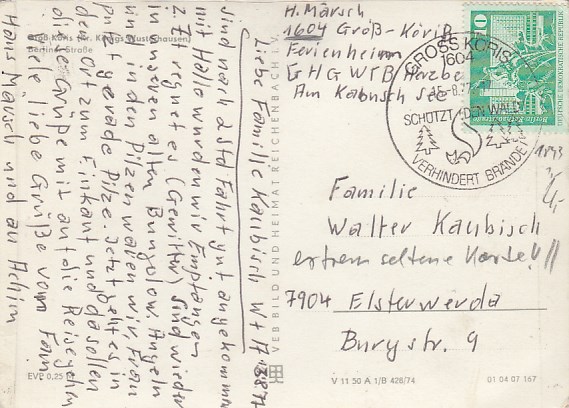 H. Märsch
1604 Groß-Köris
Ferienheim
GHG WTB
Am
GROSS KÖRIS
1604
SCHÜTZT DEN WALD
VERHINDERT BRÄNDE
10
DEUTSCHE DEMOKRATISCHE REPUBLIK
Familie
Walter Kaubisch
extrem seltene Karte!!!
7904 Elsterwerda
Burgstr. 9
Groß Köris (Kr. Königs Wusterhausen)
Berliner Straße
Liebe Familie Kaubisch
sind nach 2 Std Fahrt gut angekommen
mit Hallo wurden wir Empfangen
z.Zt regnet es (Gewitter) Sind wieder
in unseren alten Bungalow. Angeln
und in den Pilzen waren wir, Frau
putzt gerade Pilze. Jetzt geht es in
den Ort zum Einkauf und da sollen
die Grüße mit auf die Reise gehn
liebe Grüße vom Fam.
Hans Märsch und an Achim
VEB BILD UND HEIMAT REICHENBACH i. V.
EVP 0,25
V 11 50 A 1/B 428/74
01 04 07 167